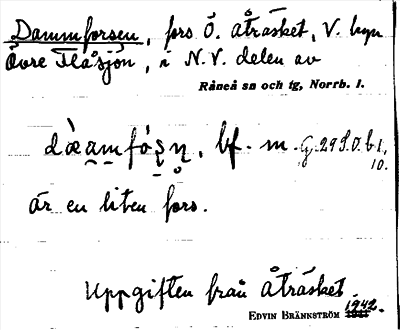 Dammforsen, fors Ö. Åträsket, V. byn
Övre Flåsjön, i N.V. delen av
Råneå sn och tg, Norrb. l.
bf. m.
är en liten fors.
Uppgiften från Åträsket.
1942.
EDVIN BRÄNNSTRÖM 1941